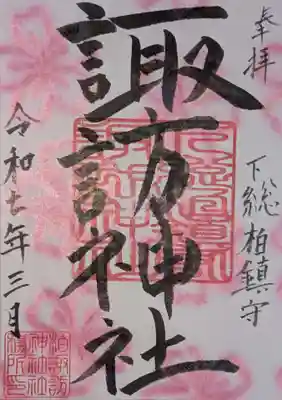 奉拝
下総柏鎮守
諏訪神社
令和七年三月
柏諏訪
神社社
務所印